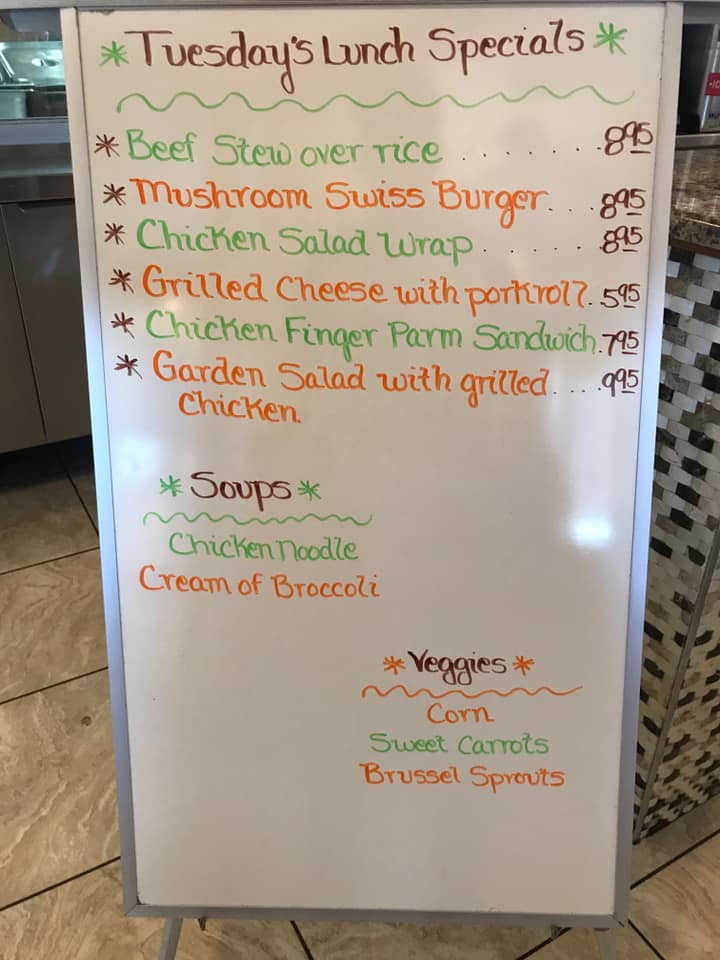 * Tuesday's Lunch Specials *
* Beef Stew over rice . . . . . . . 8 95
* Mushroom Swiss Burger. . . 8 95
* Chicken Salad Wrap . . . . . . 8 95
* Grilled Cheese with porkroll. 5 95
* Chicken Finger Parm Sandwich. 7 95
* Garden Salad with grilled. . . . 9 95
Chicken
* Soups *
Chicken noodle
Cream of Broccoli
* Veggies *
Corn
Sweet Carrots
Brussel Sprouts